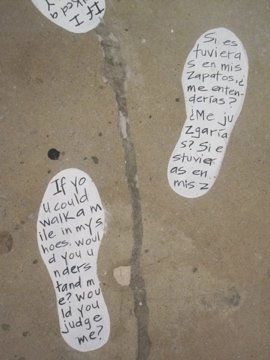 If I
Si es
tuviera
s en mis
Zapatos,¿
me enten-
derías?
¿Me ju
zgaría
s? Si e
stuvier
as en
mis z
If yo
u could
walk a m
ile in my s
hoes, woul
d you u
nders
tand m
e? wou
ld you
judge
me?